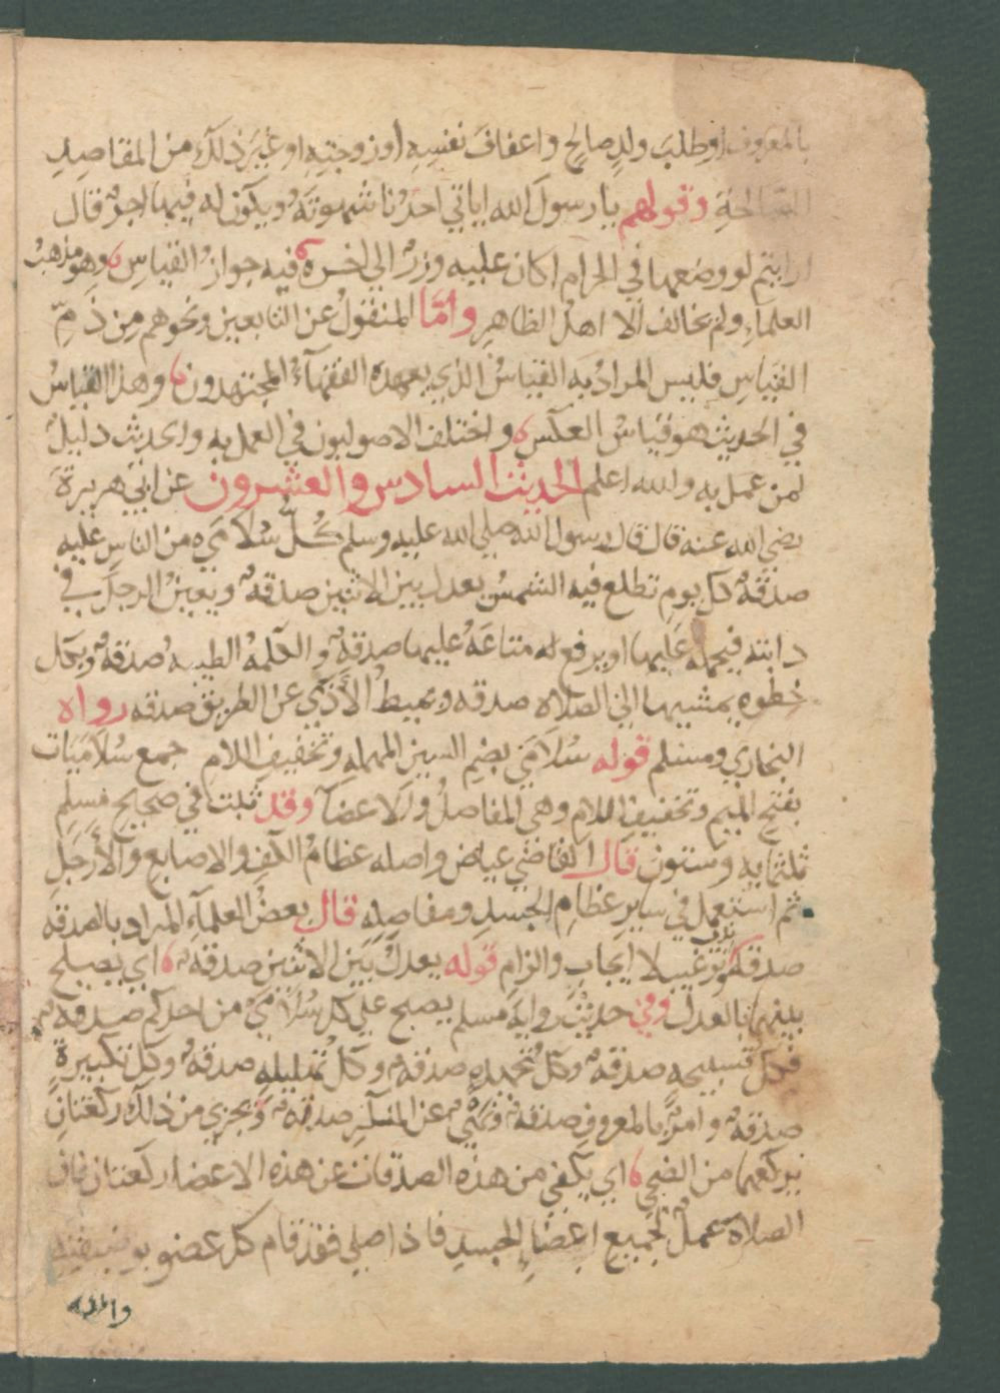 بالمعروف اوطلبَ ولدٍ صالحٍ واعفافَ نفسِه اوزوجتِهِ اوغيرَ ذلك من المقاصِدِ
الصالحةِ وقولهم يا رسولَ الله اياتي احدُنا شهوتَهُ ويكون له فيها اجرٌ قال
ارايتم لووضعها في الحرام اكان عليه وزرٌ الي اخره فيه جوازُ القياسِ وهومذهبُ
العلماءِ ولم يخالف الا اهلُ الظاهِرِ وامّا المنقولُ عن التابعين ونحوِهم مِن ذمِّ
القياسِ فليس المرادُ به القياسُ الذي يعهده الفقهاءُ المجتهدون وهذا القياسُ
في الحديث هو قياسُ العكسِ واختلف الاصوليون في العمل به والحديث دليلٌ
لمن عمل به والله اعلم الحديث السادس والعشرون عن ابي هريرة
رضي الله عنه قال قال رسول الله صلي الله عليه وسلم كُلُّ سُلامَي من الناسِ عليه
صدقةٌ كل يومٍ تطلع فيه الشمسُ يعدل بين الاثنين صدقةٌ ويعينُ الرجلَ في
دابته فيحمله عَليها اويرفع له متاعَهُ عليها صدقةٌ والكلمةُ الطيبه صُدقةٌ وبكل
خطوهٍ يمشيها الي الصلاه صدقه ويميطُ الأذَي عن الطريق صدقه رواه
البخاري ومسلم قوله سُلامَي بضم السين المهمله وتخفيف اللام جمع سُلامَيَات
بفتح الميم وتخفيف اللامِ وهي المفاصلُ والاعضآ وقد ثبت في صحيح مسلِمٍ
ثلثمايهٍ وستون قال القاضي عياض واصله عظامُ الكف والاصابع والأرجل
ثم استعمل في سايرِ عظامِ الجسدِ ومفاصِلِه قال بعضُ العلماءِ المراد بالصدقه
صدقةُ ترغيب لا ايجابٍ والزامٍ قوله يعدلُ بَين الاثنين صدقةٌ اي يصلح
بينهما بالعدل وفي حديثٍ رواية مسلم يصبح علي كل سُلامَيٍ من احدكم صدقةٌ
فكل تسبيحهٍ صدقةٌ وكل تحميدهٍ صدقةٌ وكل تهليلهٍ صدقةٌ وكل تكبيرةٍ
صدقةٌ وامرٌ بالمعروفِ صدقةٌ ونهيٌ عن المنكرِ صدقةٌ ويجزي من ذلك ركعتانِ
يركعهما من الضحي اي يكفي من هذه الصدقات عن هذه الاعضا ركعتان فان
الصلاةَ عملٌ لجميعِ اعضاءِ الجسدِ فاذا صلي فقد قام كل عضو بوظيفته
والله